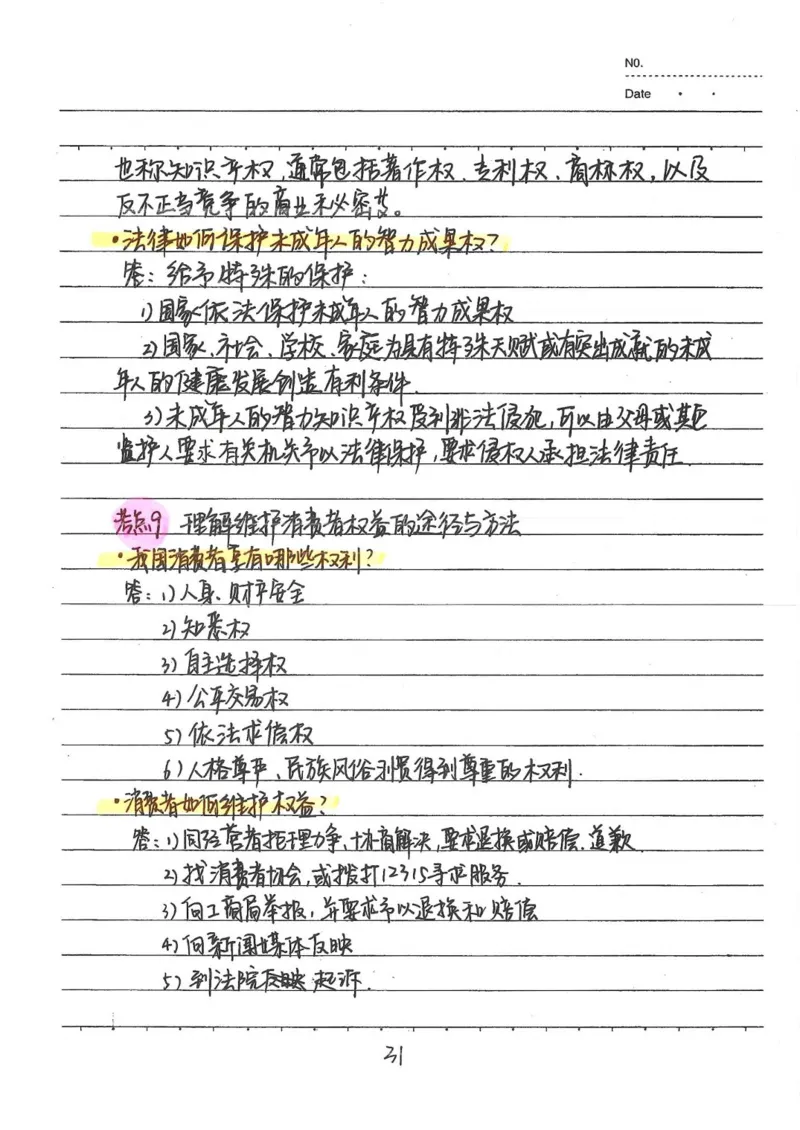 NO.
Date
也称知识产权,通常包括著作权、专利权、商标权,以及
反不正当竞争的商业秘密等。
·法律如何保护未成年人的智力成果权?
答:给予特殊的保护:
1)国家依法保护未成年人的智力成果权
2)国家、社会、学校、家庭为具有特殊天赋或有突出成就的未成
年人的健康发展创造有利条件.
3)未成年人的智力知识产权受到非法侵犯,可以由父母或其它
监护人要求有关机关予以法律保护,要求侵权人承担法律责任.
考点9 理解维护消费者权益的途径与方法
·我国消费者享有哪些权利?
答:1)人身、财产安全
2)知悉权
3)自主选择权
4)公平交易权
5)依法求偿权
6)人格尊严、民族风俗习惯得到尊重的权利.
·消费者如何维护权益?
答:1)同经营者据理力争,协商解决,要求退换或赔偿、道歉.
2)找消费者协会,或拨打12315寻求服务.
3)向工商局举报,并要求予以退换和赔偿
4)向新闻媒体反映
5)到法院起诉.
31